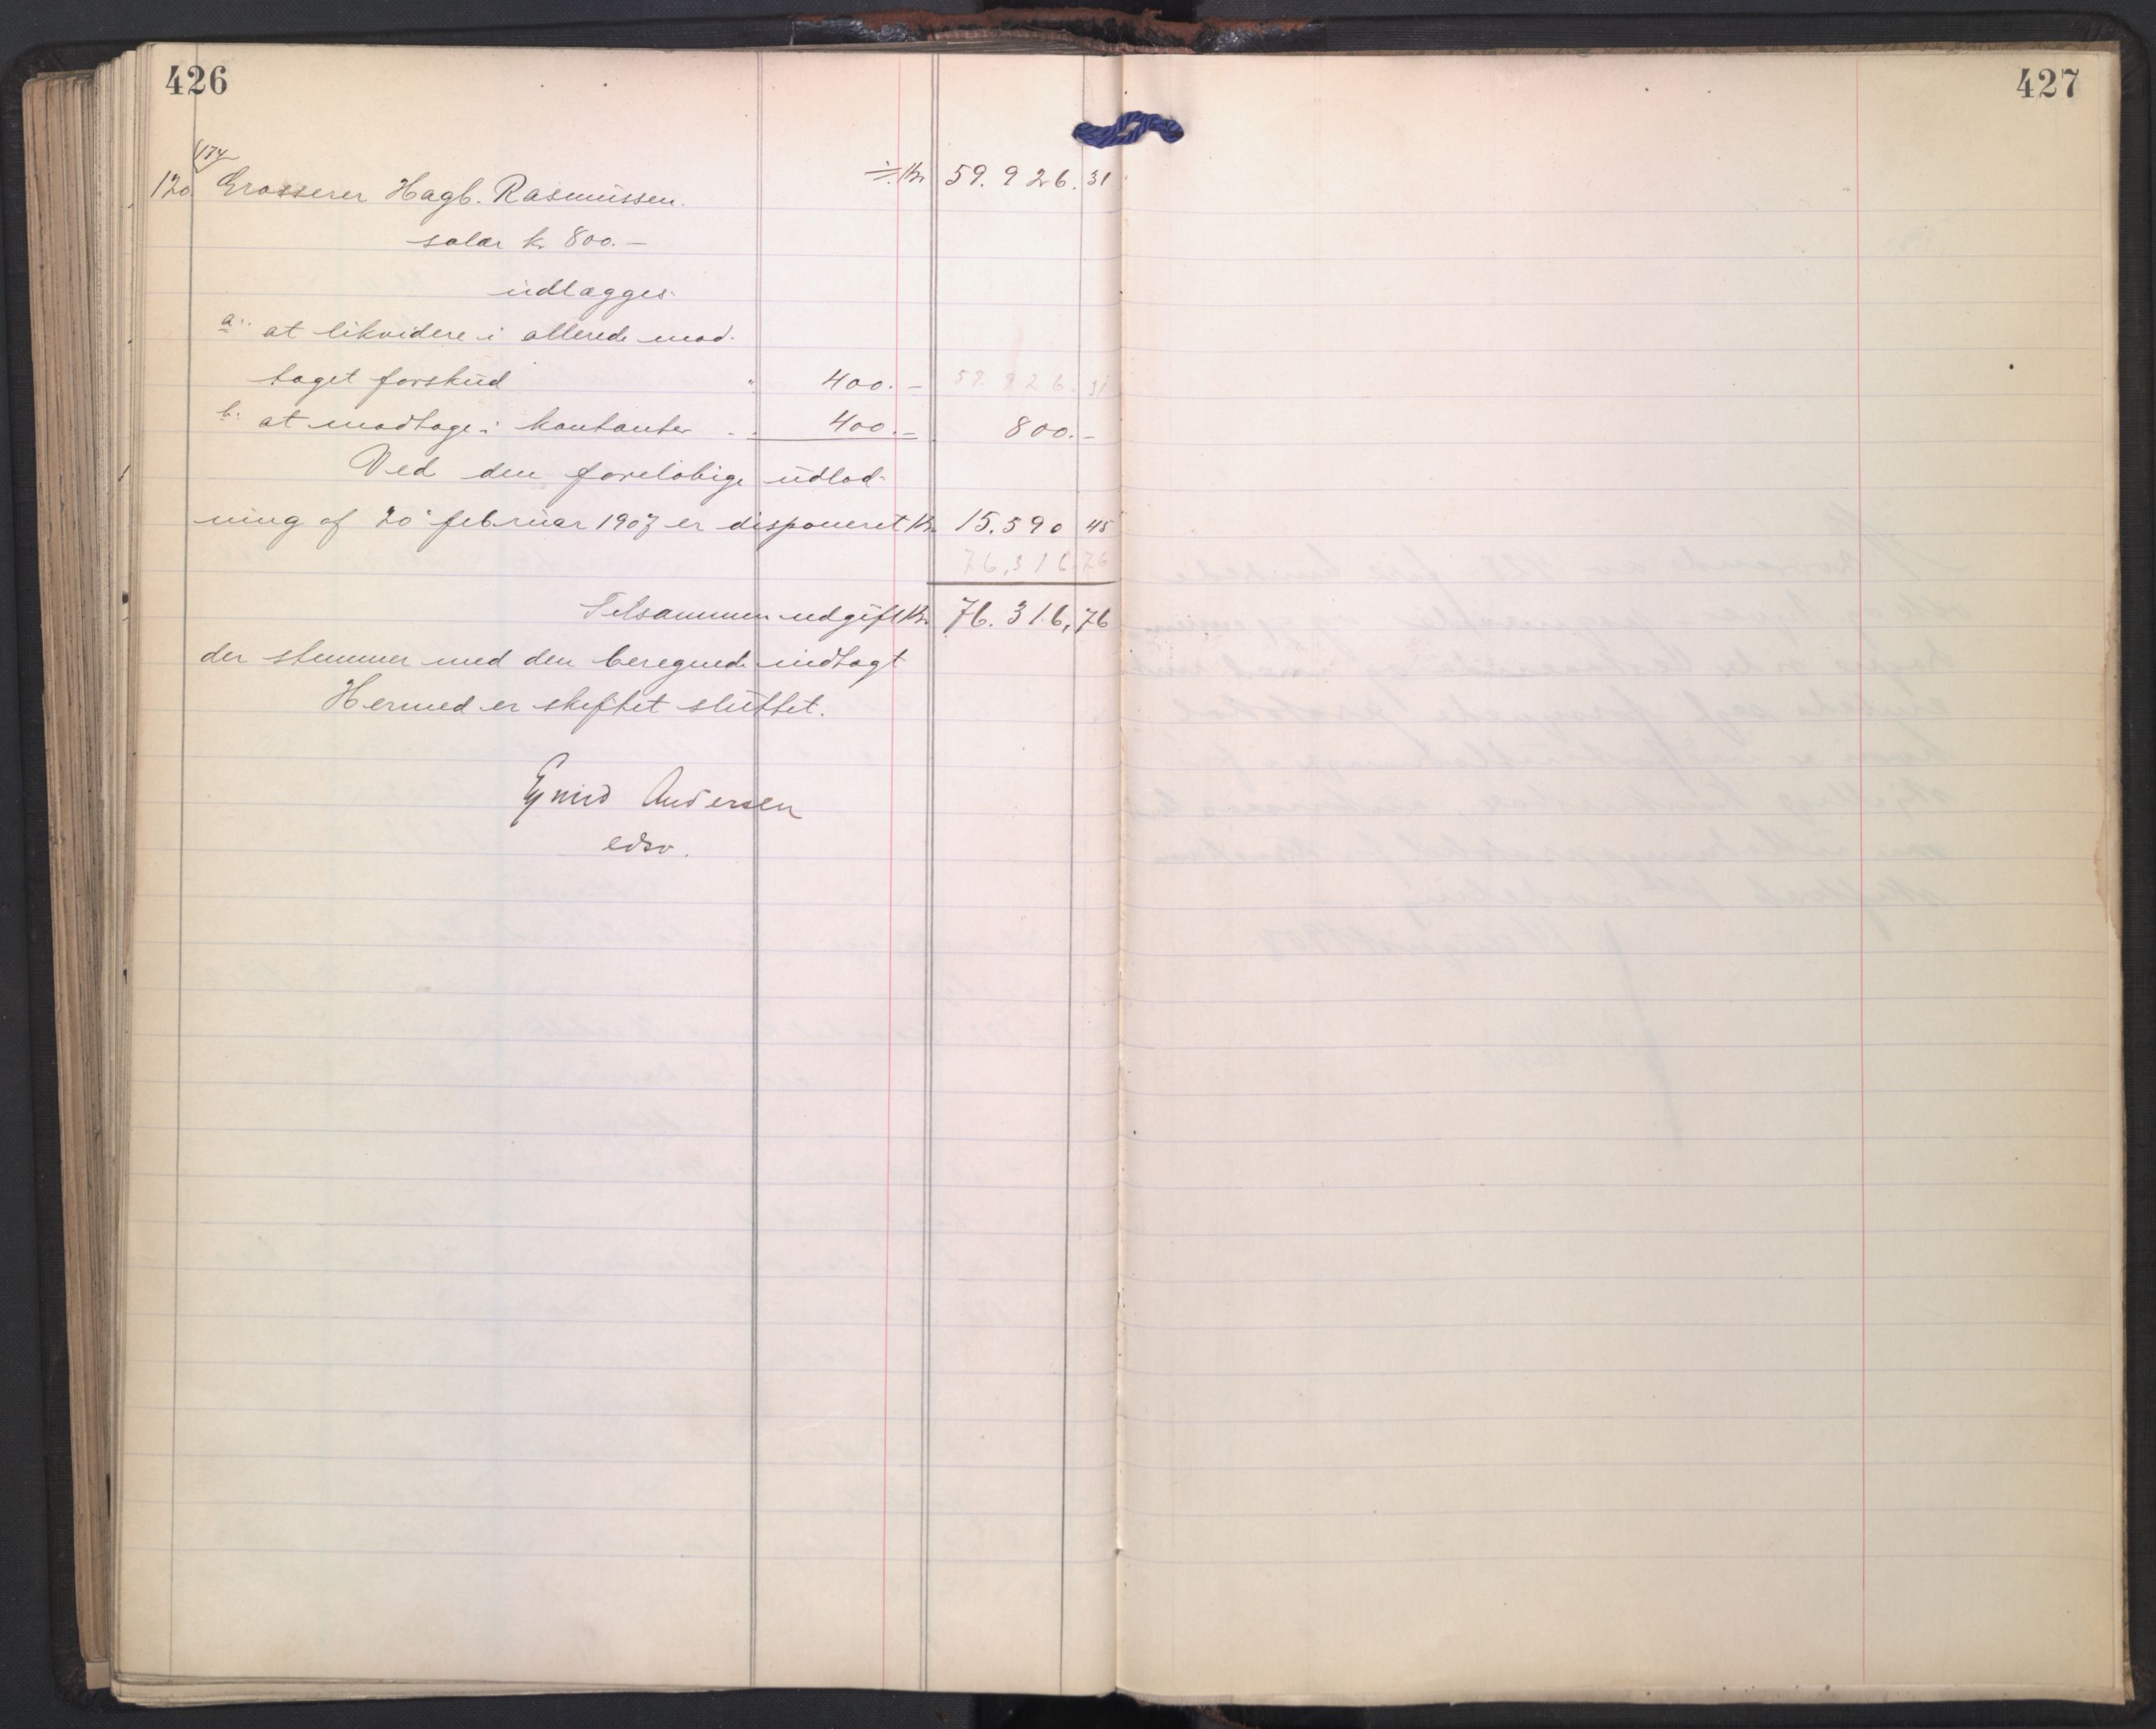 426
427
174
÷ Kr 59.926.31
120. Grosserer Hagb. Rasmüssen.
salær kr 800.–
üdlægges:
a: at likvidere i allerede mod-
taget forsküd " 400.– 59.926.31
b: at modtage i kontanter - 400.– 800.–
Ved den foreløbige üdlod-
ning af 20' februar 1907 er disponeret Kr. 15.590 45
76,316,76
Tilsammen udgift Kr 76.316,76
der stemmer med den beregnede indtægt
Hermed er skiftet slüttet.
Andersen
edsv.